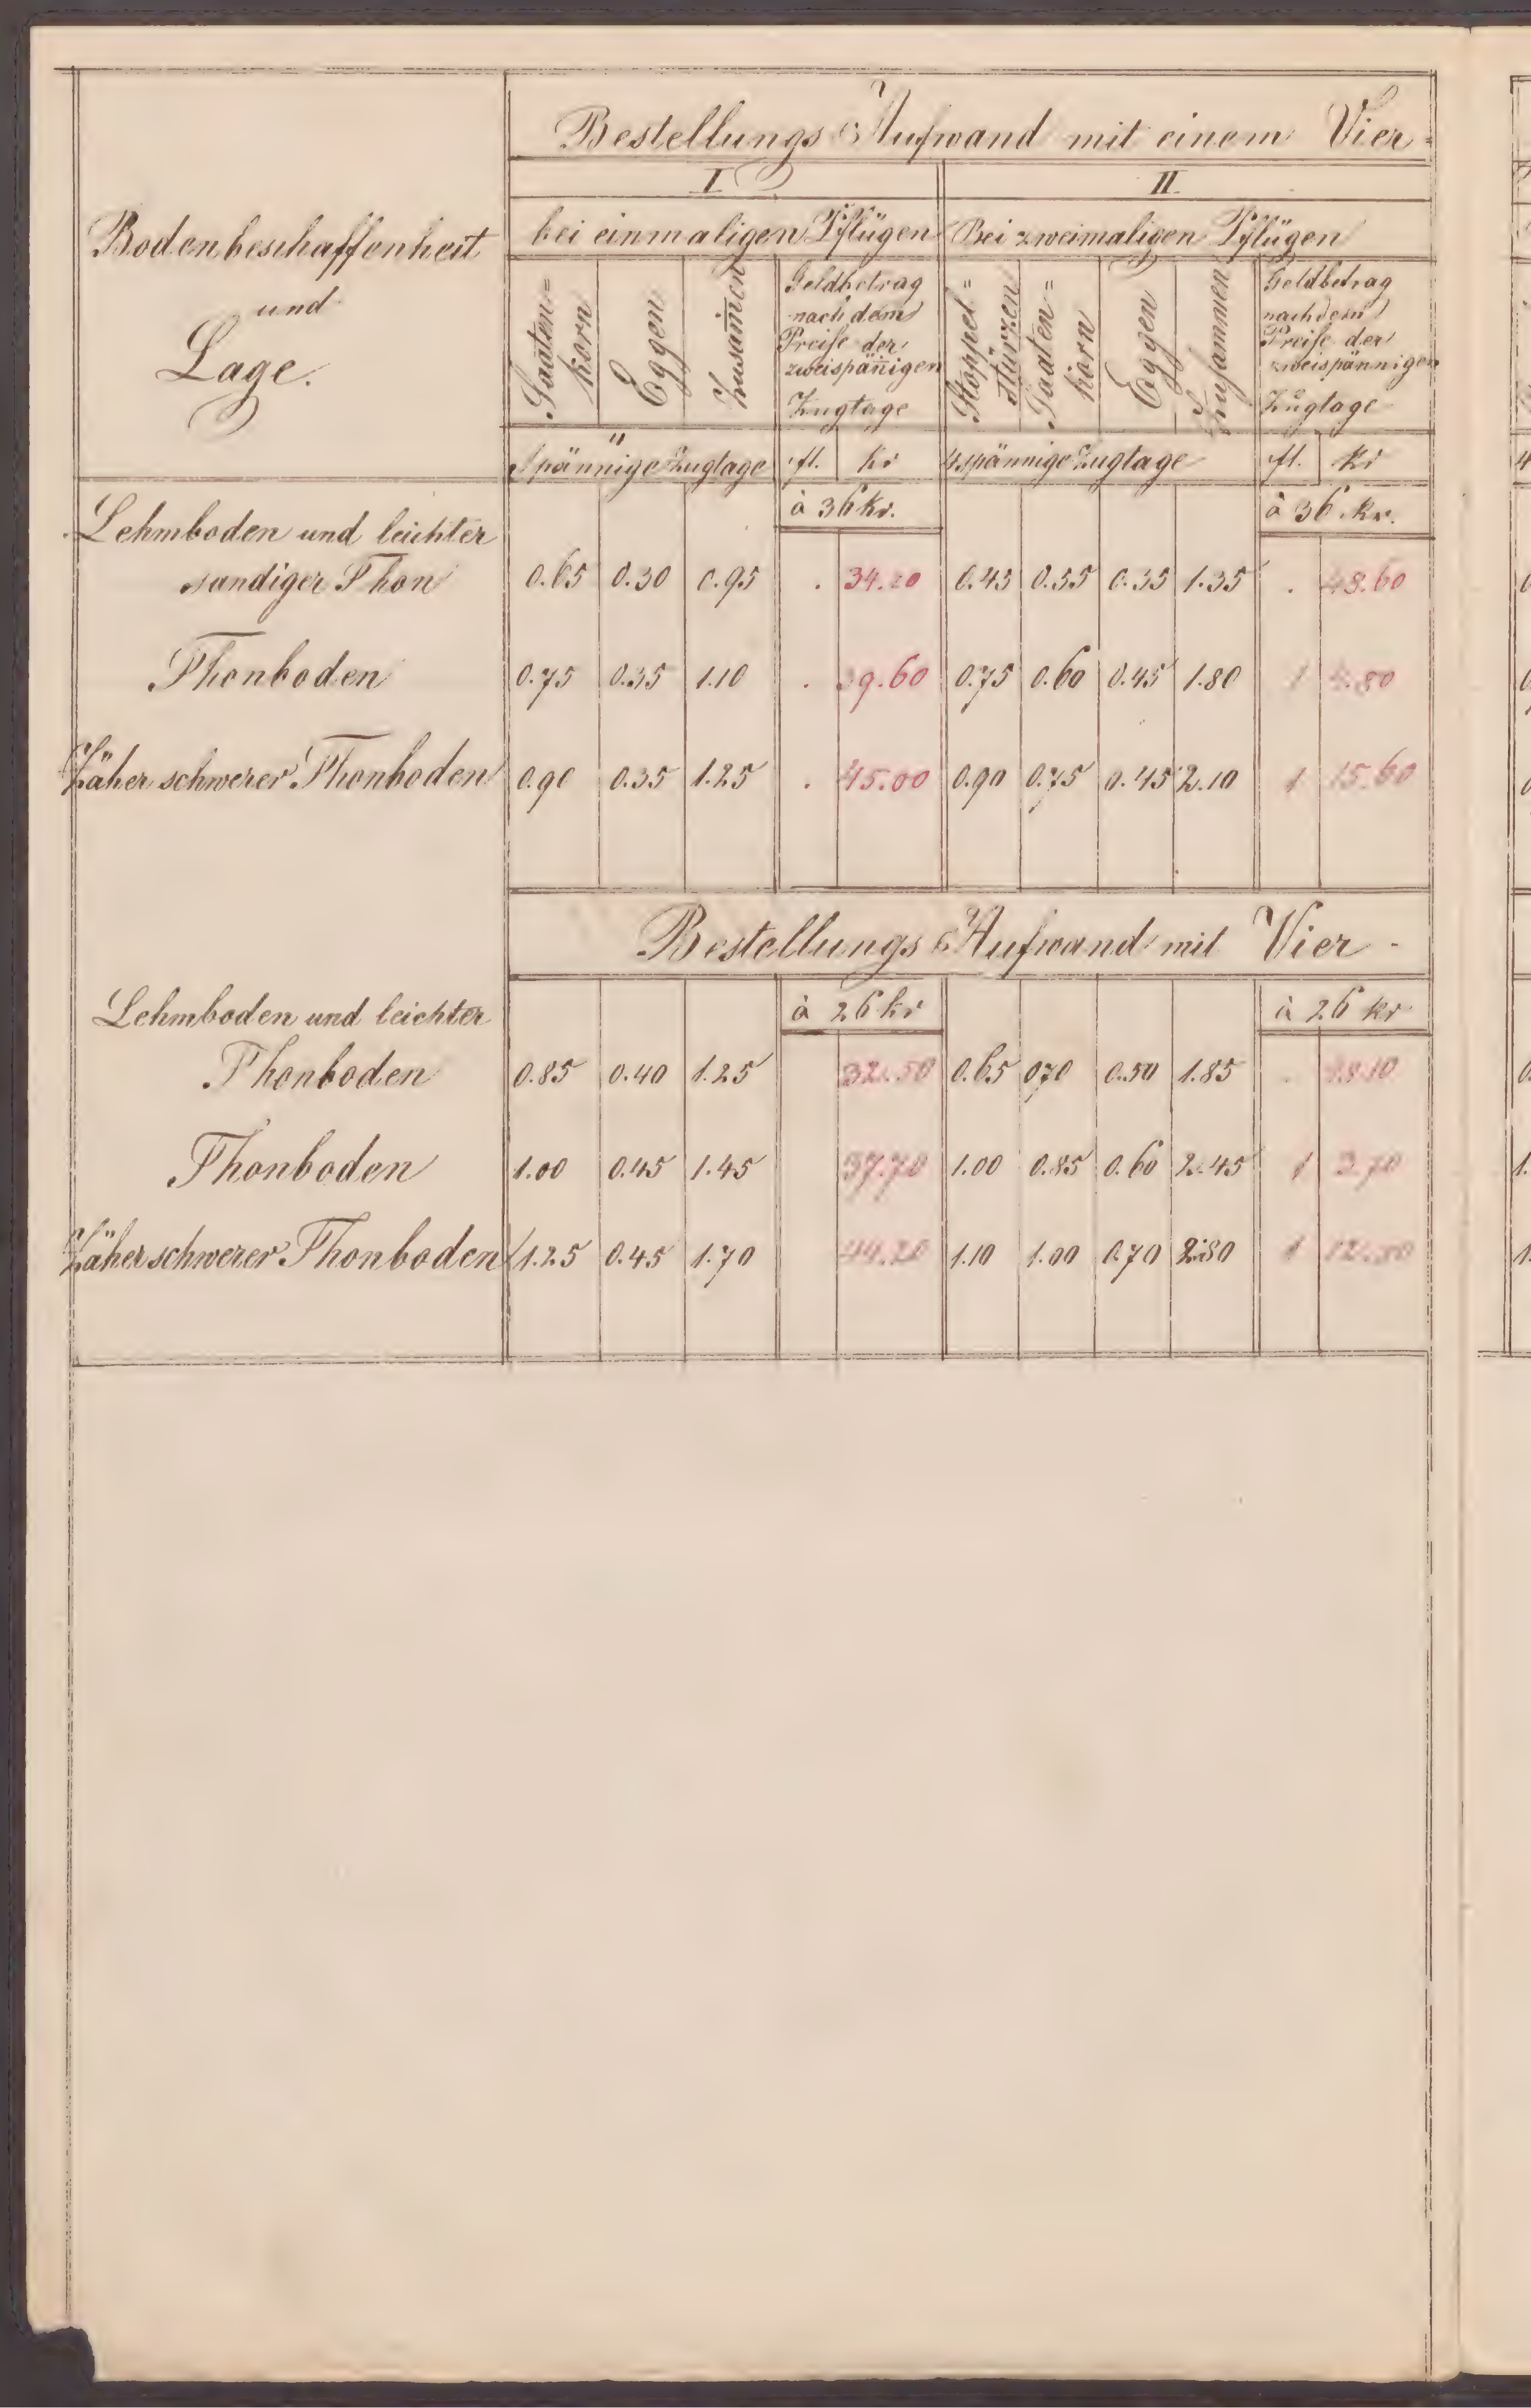 Bestellungs Aufwand mit einem Vier-
I
II
Bodenbeschaffenheit
und
Lage.
bei einmaligen Pflügen
Bei zweimaligen Pflügen
Saaten=
korn
Eggen
Zusam̄en
Geldbetrag
nach dem
Preise der
zweispän̄igen
Zugtage
Stoppel=
stürzen
Saaten=
korn
Eggen
Zusammen
Geldbetrag
nach dem
Preise der
zweispännigen
Zugtage
spännige Zugtage fl. kr 4spännige Zugtage fl. kr
à 36 kr. à 36 kr.
Lehmboden und leichter
sandiger Thon 0.65 0.30 0.95 . 34.20 0.45 0.55 0.35 1.35 . 48.60
Thonboden 0.75 0.35 1.10 . 39.60 0.75 0.60 0.45 1.80 1 4.80
Zäher schwerer Thonboden 0.90 0.35 1.25 . 45.00 0.90 0.75 0.45 2.10 1 15.60
Bestellungs Aufwand mit Vier-
à 26 kr à 26 kr
Lehmboden und leichter
Thonboden 0.85 0.40 1.25 32.50 0.65 070 0.50 1.85 . 48.10
Thonboden 1.00 0.45 1.45 37.70 1.00 0.85 0.60 2.45 1 3.70
Zäher schwerer Thonboden 1.25 0.45 1.70 44.20 1.10 1.00 0.70 2.80 1